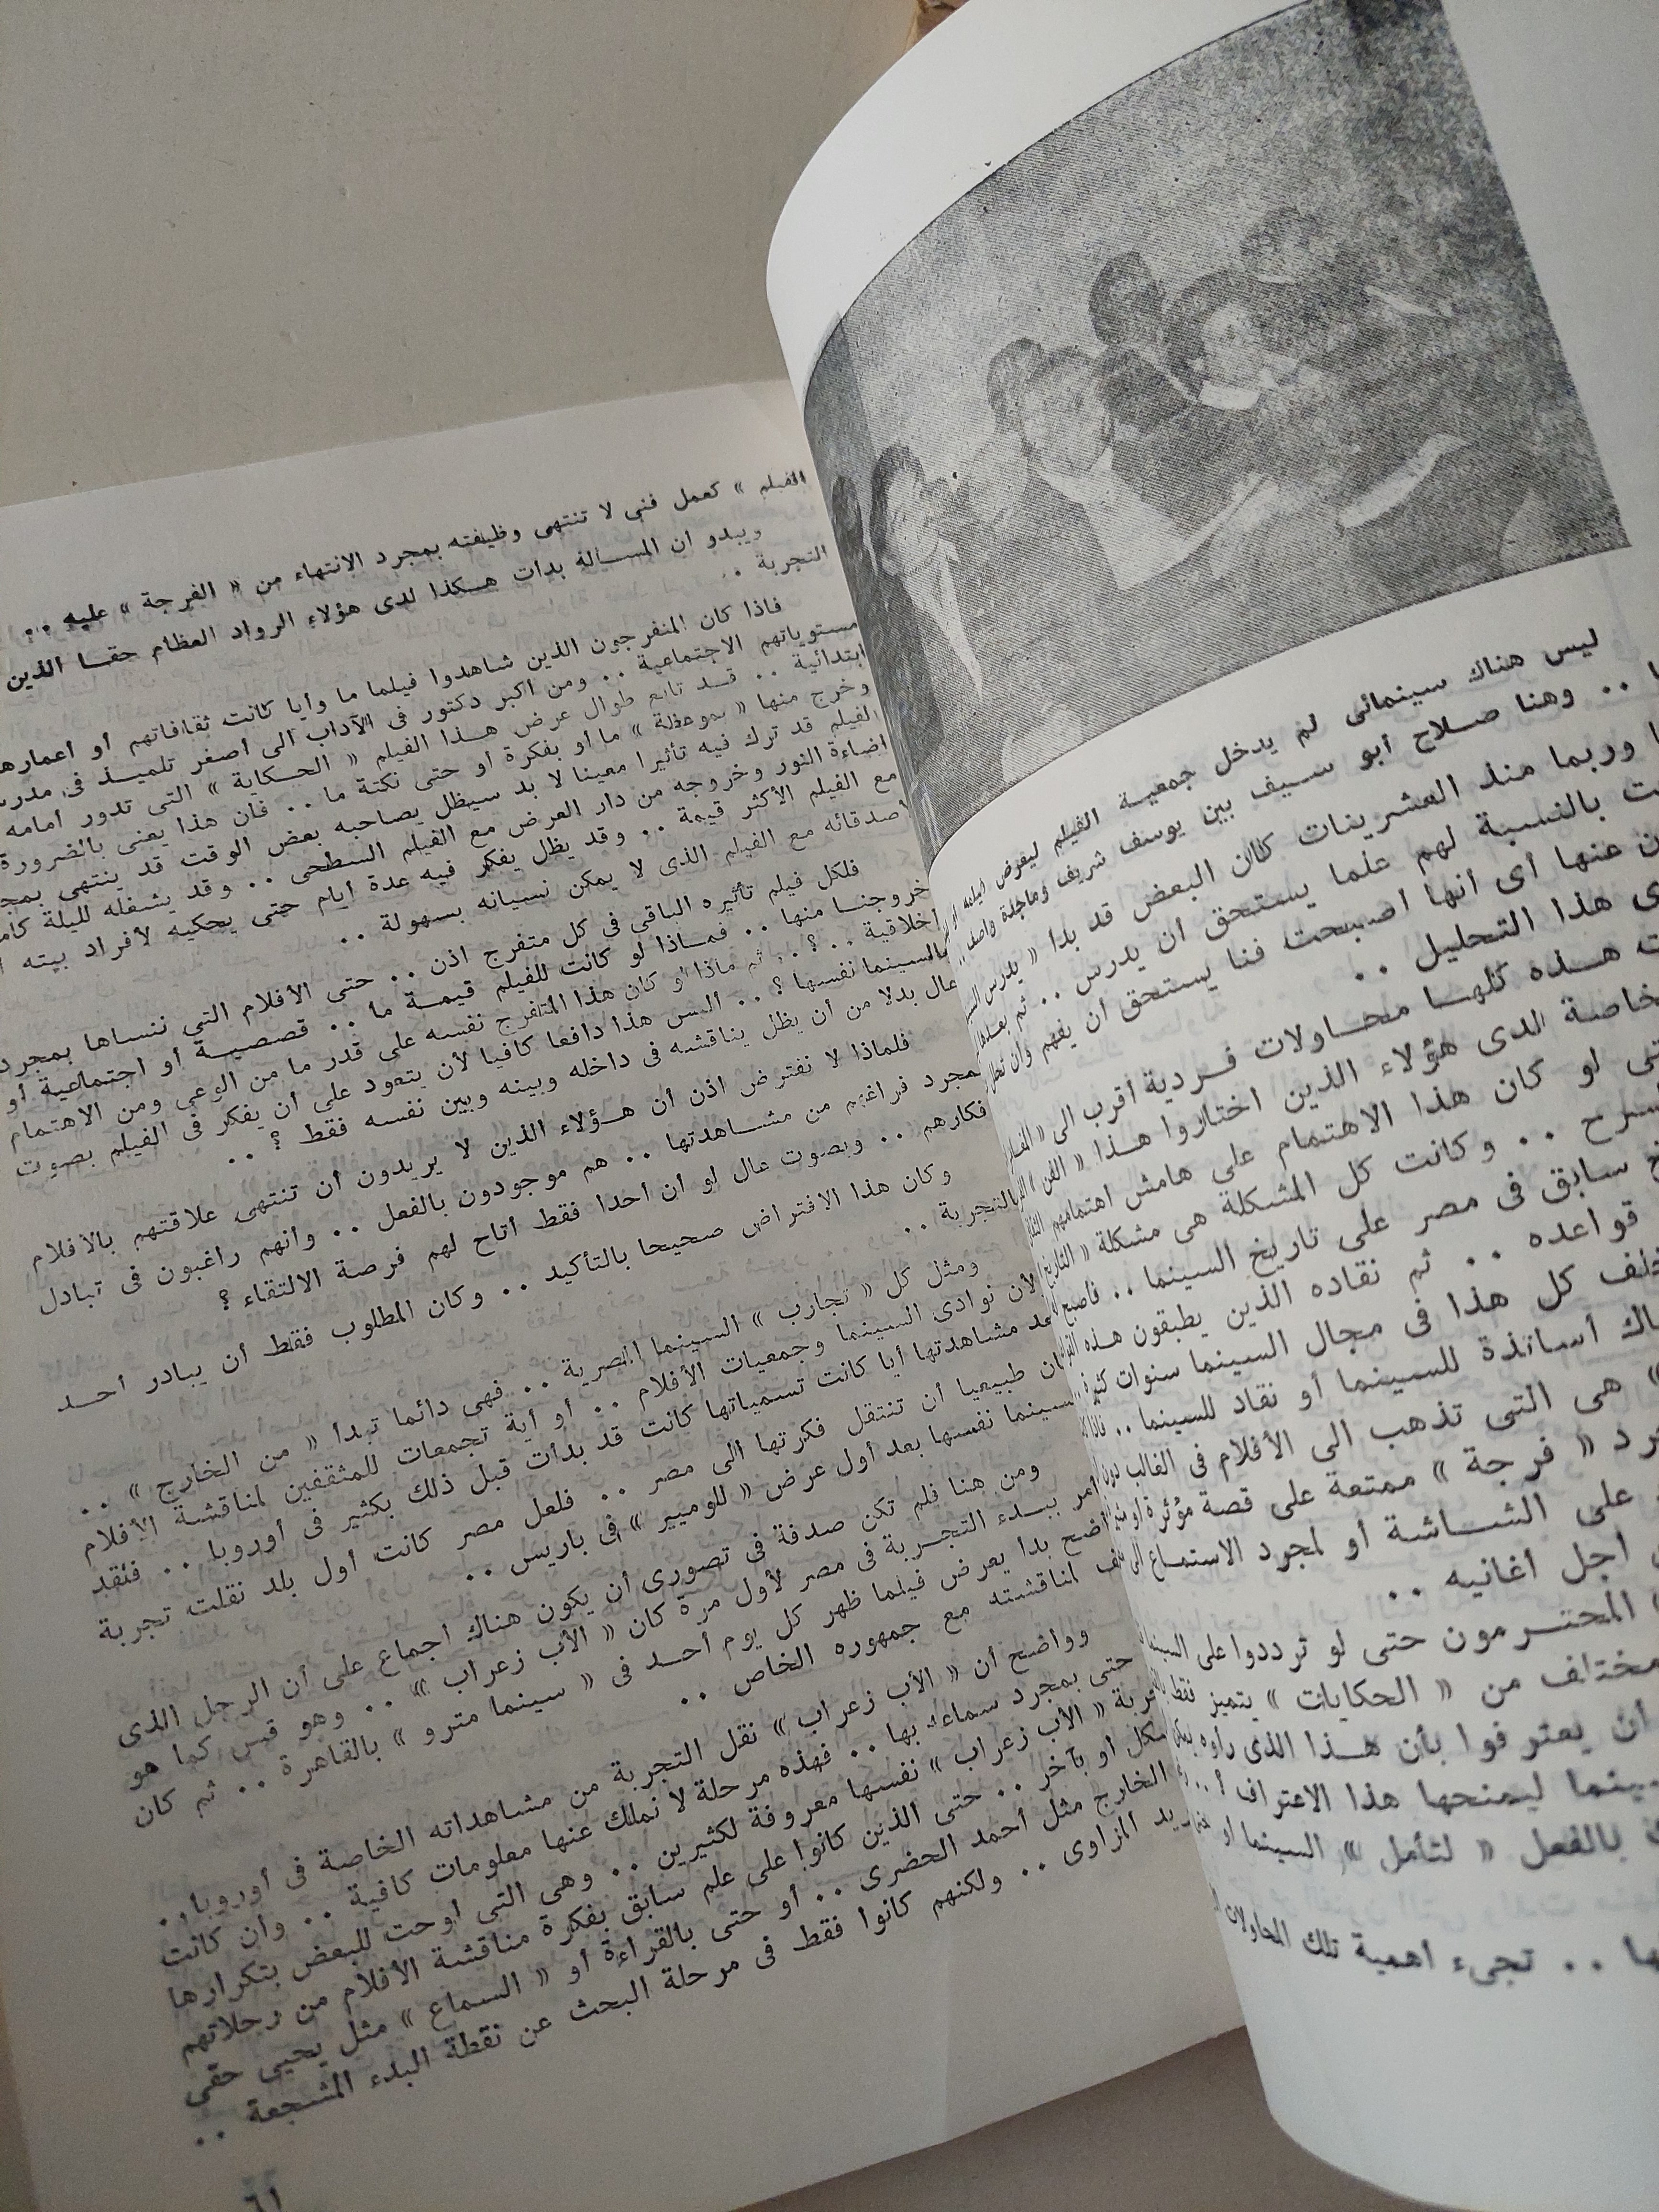 ليس هناك سينمائى لم يدخل جمعية الفيلم ليعرض فيلمه
وهنا صلاح أبو سيف بين يوسف شريف وماجدة واصف ..
وربما منذ العشرينات كان البعض قد بدأ « يدرس
بالنسبة لهم علما يستحق أن يدرس .. ثم بعدها
عنها أى أنها أصبحت فنا يستحق أن يفهم وأن
هذا التحليل ..
هذه كلها محاولات فردية أقرب الى
خاصة لدى هؤلاء الذين اختاروا هذا « الفن »
لو كان هذا الاهتمام على هامش اهتمامهم
.. وكانت كل المشكلة هى مشكلة « التاريخ
سابق فى مصر على تاريخ السينما .. فأصبح
قواعده .. ثم نقاده الذين يطبقون هذه
كل هذا فى مجال السينما سنوات كثيرة
أساتذة للسينما أو نقاد للسينما ..
هى التى تذهب الى الأفلام فى الغالب دون
« فرجة » ممتعة على قصة مؤثرة أو
على الشاشة أو لمجرد الاستماع الى
أجل أغانيه ..
المحترمون حتى لو ترددوا على السينما
مختلف من « الحكايات » يتميز فقط
أن يعترفوا بأن هذا الذى رأوه
ليمنحها هذا الاعتراف ؟ ..
بالفعل « لتأمل » السينما أو
.. تجىء أهمية تلك المحاولات
الفيلم » كعمل فنى لا تنتهى وظيفته بمجرد الانتهاء من « الفرجة » عليه ..
ويبدو أن المسألة بدأت هكذا لدى هؤلاء الرواد العظام حقا الذين
التجربة ..
فاذا كان المتفرجون الذين شاهدوا فيلما ما وأيا كانت ثقافاتهم أو أعمارهم
مستوياتهم الاجتماعية .. ومن أكبر دكتور فى الآداب الى أصغر تلميذ فى
ابتدائية .. قد تابع طوال عرض هذا الفيلم « الحكاية » التى تدور أمامه
وخرج منها « بموعظة » ما أو بفكرة أو حتى نكتة ما .. فان هذا يعنى بالضرورة
الفيلم قد ترك فيه تأثيرا معينا لا بد سيظل يصاحبه بعض الوقت قد ينتهى
اضاءة النور وخروجه من دار العرض مع الفيلم السطحى .. وقد يشغله لليلة
مع الفيلم الأكثر قيمة .. وقد يظل يفكر فيه عدة أيام حتى يحكيه لأفراد بيته
أصدقائه مع الفيلم الذى لا يمكن نسيانه بسهولة ..
فلكل فيلم تأثيره الباقى فى كل متفرج اذن .. حتى الأفلام التى ننساها بمجرد
خروجنا منها .. فماذا لو كانت للفيلم قيمة ما .. قصصية أو اجتماعية أو
أخلاقية .. ؟ .. ثم ماذا لو كان هذا المتفرج نفسه على قدر ما من الوعى ومن الاهتمام
بالسينما نفسها ؟ .. أليس هذا دافعا كافيا لأن يتعود على أن يفكر فى الفيلم بصوت
عال بدلا من أن يظل يناقشه فى داخله وبينه وبين نفسه فقط ؟ ..
فلماذا لا نفترض اذن أن هؤلاء الذين لا يريدون أن تنتهى علاقتهم بالأفلام
بمجرد فراغهم من مشاهدتها .. هم موجودون بالفعل .. وأنهم راغبون فى تبادل
أفكارهم .. وبصوت عال لو أن أحدا فقط أتاح لهم فرصة الالتقاء ؟
وكان هذا الافتراض صحيحا بالتأكيد .. وكان المطلوب فقط أن يبادر أحد
بالتجربة ..
ومثل كل « تجارب » السينما المصرية .. فهى دائما تبدأ « من الخارج » ..
لأن نوادى السينما وجمعيات الأفلام .. أو أية تجمعات للمثقفين لمناقشة الأفلام
بعد مشاهدتها أيا كانت تسمياتها كانت قد بدأت قبل ذلك بكثير فى أوروبا .. فقد
كان طبيعيا أن تنتقل فكرتها الى مصر .. فلعل مصر كانت أول بلد نقلت تجربة
السينما نفسها بعد أول عرض « للوميير » فى باريس ..
ومن هنا فلم تكن صدفة فى تصورى أن يكون هناك اجماع على أن الرجل الذى
أمر ببدء التجربة فى مصر لأول مرة كان « الأب زعراب » .. وهو قس كما هو
واضح بدأ يعرض فيلما ظهر كل يوم أحد فى « سينما مترو » بالقاهرة .. ثم كان
يقف لمناقشته مع جمهوره الخاص ..
وواضح أن « الأب زعراب » نقل التجربة من مشاهداته الخاصة فى أوروبا ..
حتى بمجرد سماعه بها .. فهذه مرحلة لا نملك عنها معلومات كافية .. وان كانت
تجربة « الأب زعراب » نفسها معروفة لكثيرين .. وهى التى أوحت للبعض بتكرارها
بشكل أو بآخر .. حتى الذين كانوا على علم سابق بفكرة مناقشة الأفلام من رحلاتهم
الخارج مثل أحمد الحضرى .. أو حتى بالقراءة أو « السماع » مثل يحيى حقى
فريد المزاوى .. ولكنهم كانوا فقط فى مرحلة البحث عن نقطة البدء المشجعة ..
٦١